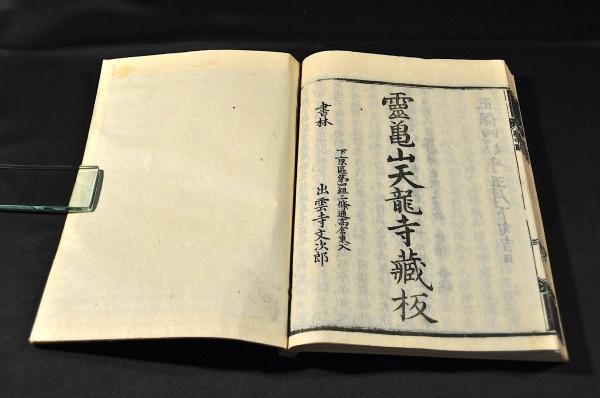 靈亀山天龍寺藏板
下京區第四組三條通高倉東入
書林 出雲寺文次郎